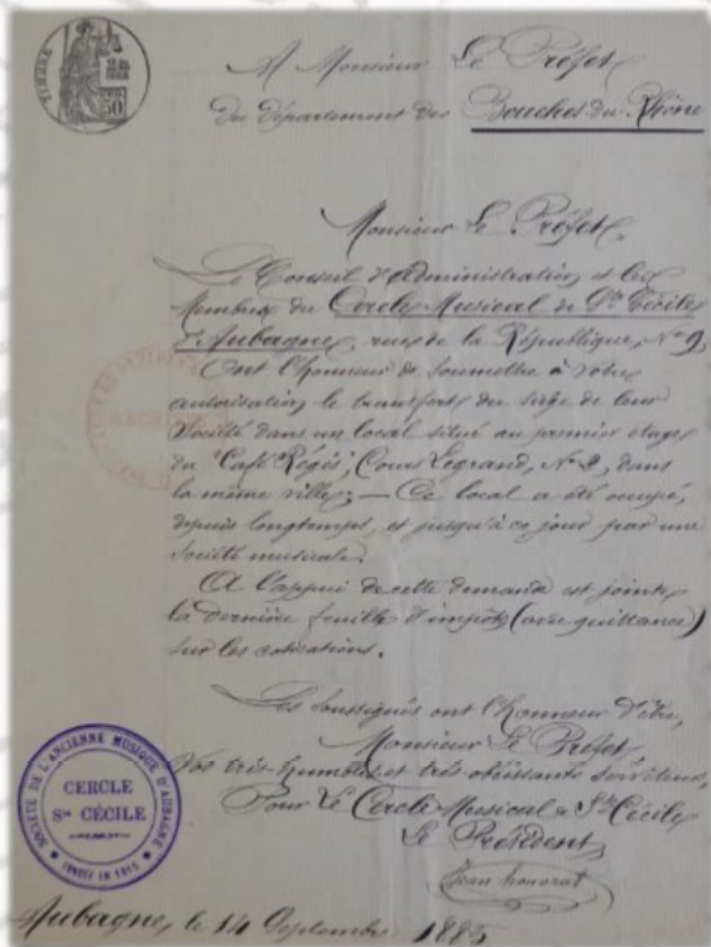 TIMBRE
50
A Monsieur Le Préfet
Du département des Bouches-du-Rhône
Monsieur Le Préfet,
Le Conseil d'administration et les
Membres du Cercle Musical de Ste Cécile
d'Aubagne, rue de la République, No 9,
Ont l'honneur de soumettre à votre
autorisation le transfert du siège de leur
Société dans un local situé au premier étage
du "Café Régis", Cours Legrand, No 2, dans
la même ville; — Ce local a été occupé,
depuis longtemps, et jusqu'à ce jour par une
Société musicale.
A l'appui de cette demande est jointe
la dernière feuille d'impôts (avec quittance)
sur les cotisations.
Les soussignés ont l'honneur d'être,
Monsieur Le Préfet,
Vos très-humbles et très-obéissants serviteurs,
Pour Le Cercle Musical de Ste Cécile
Le Président,
Jean Honorat
SOCIÉTÉ DE L'ANCIENNE MUSIQUE D'AUBAGNE
CERCLE
Ste CÉCILE
FONDÉE EN
Aubagne, le 14 Septembre 1885